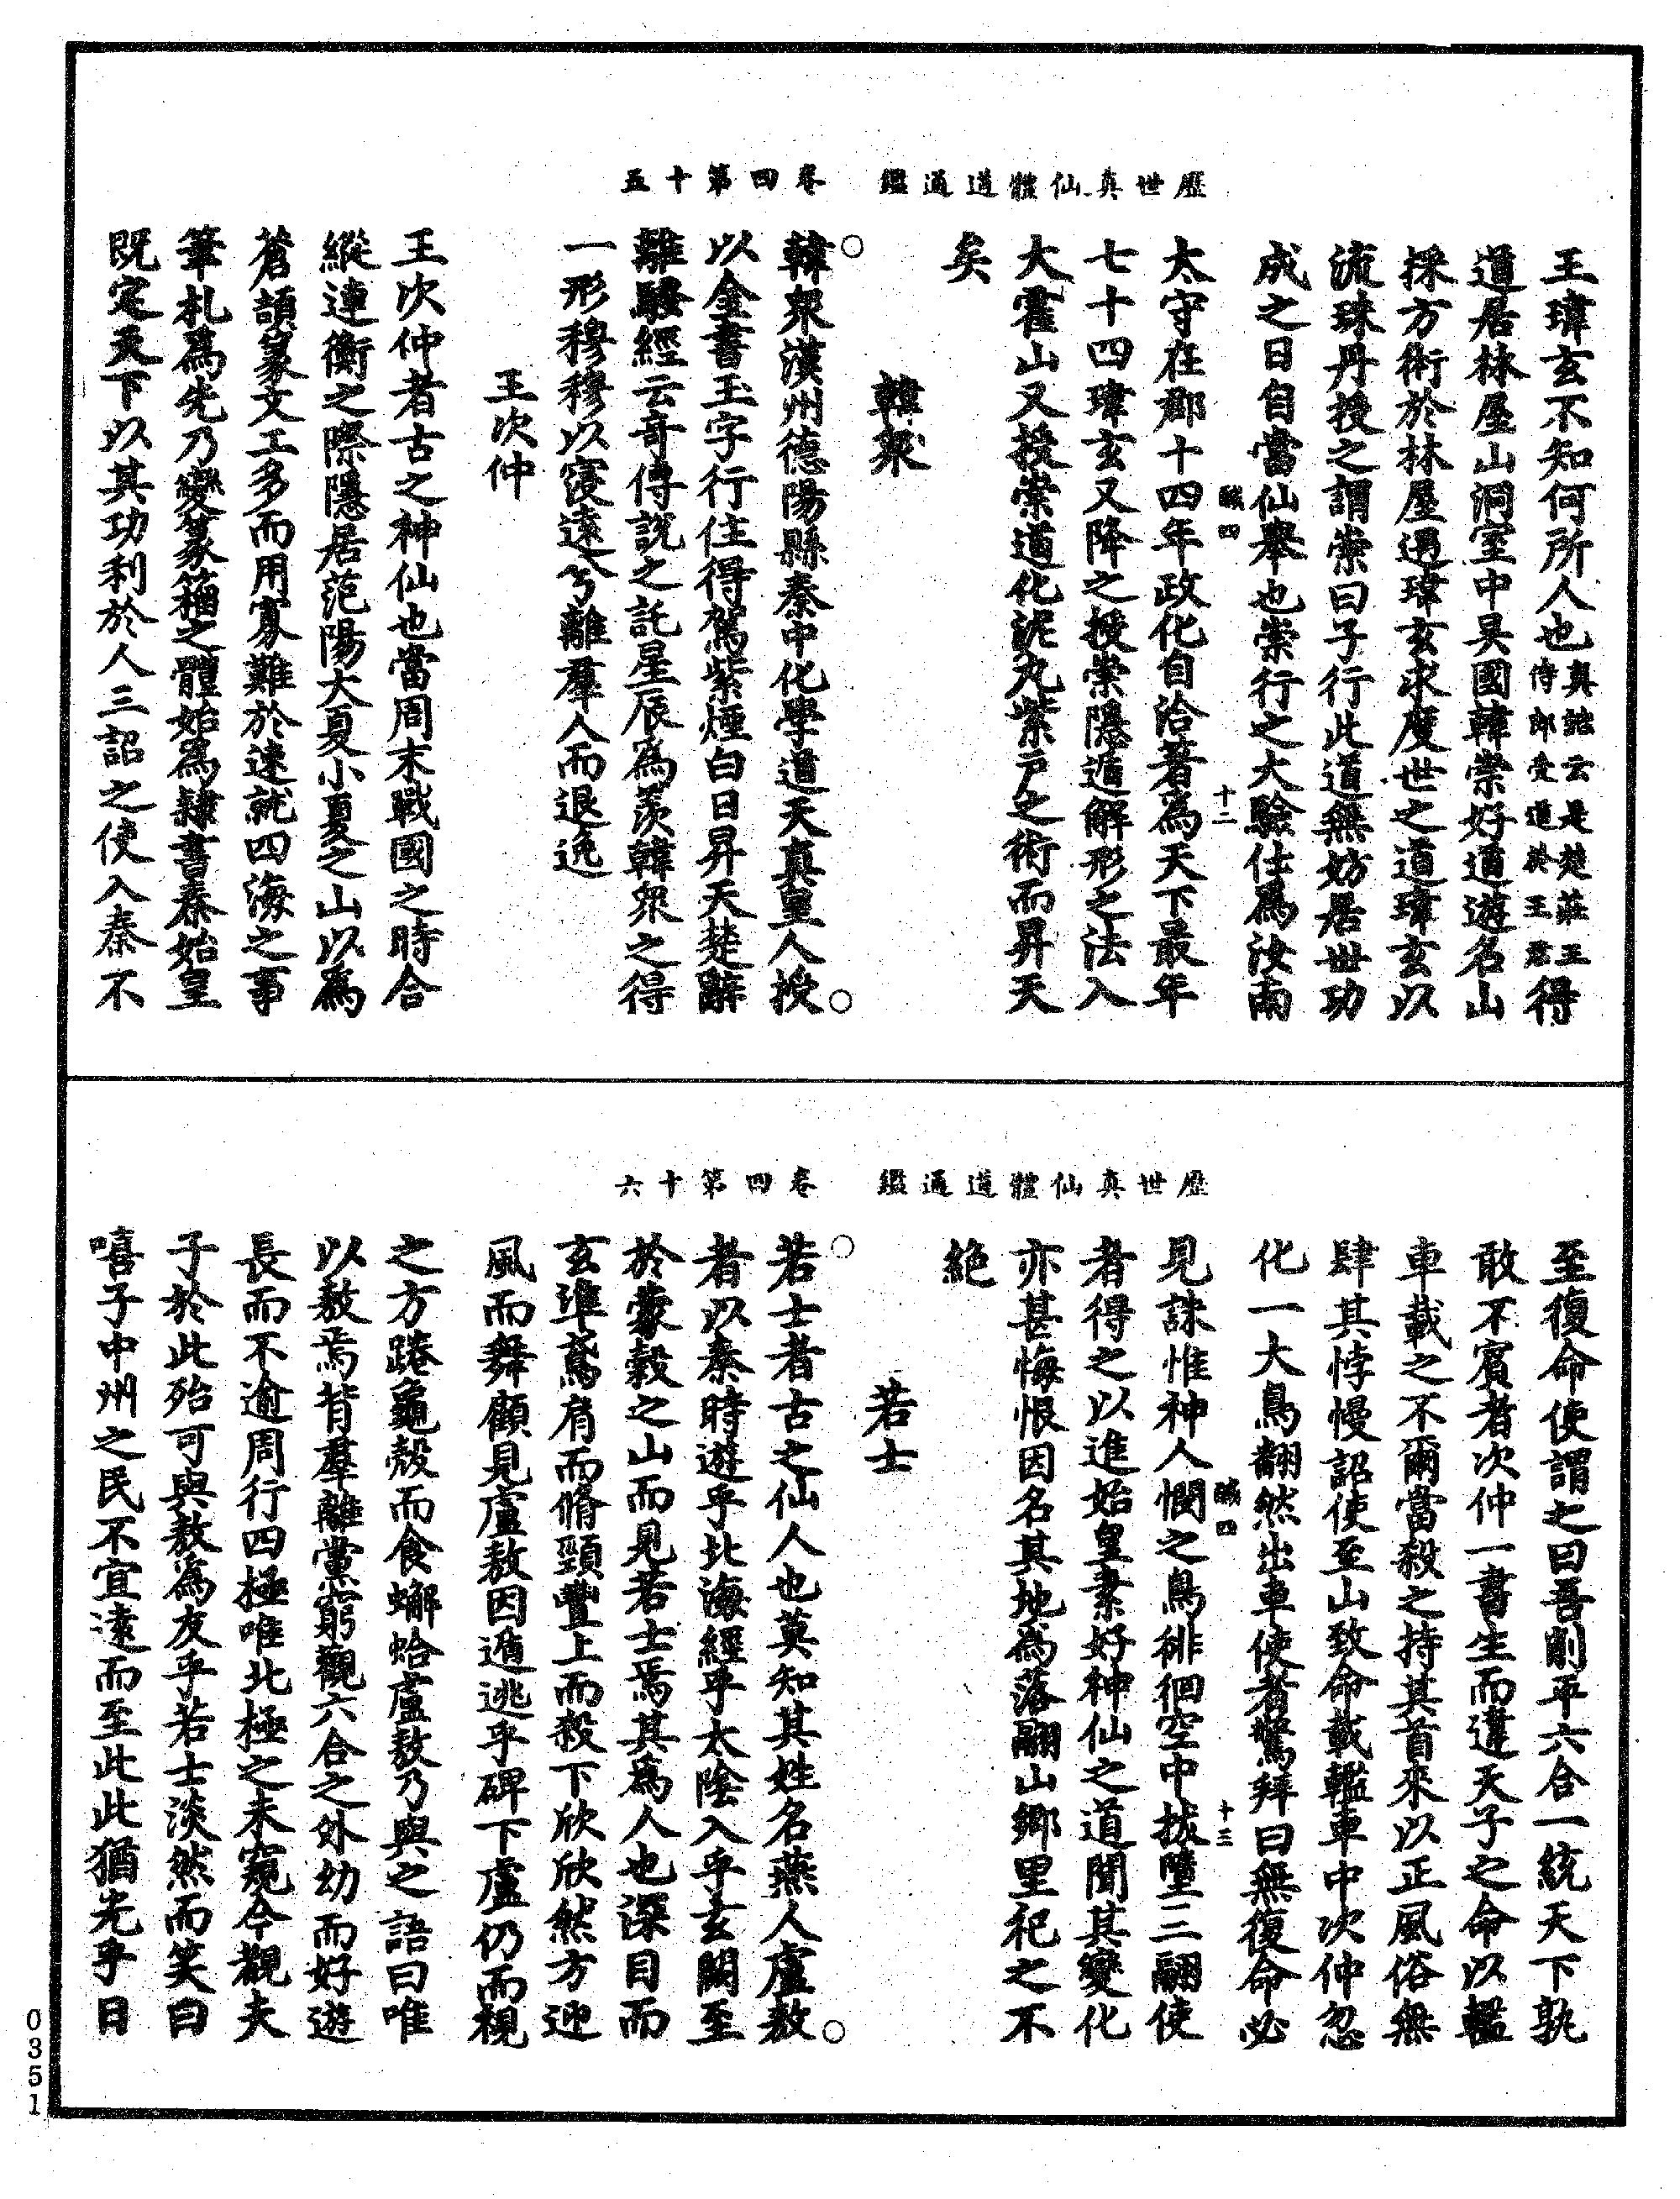 歷世真仙體道通鑑　卷四第十五
王瑋玄不知何所人也真誥云是楚莊王侍郎受道於王君得
道居林屋山洞室中吳國韓崇好道遊名山
採方術於林屋遇瑋玄求度世之道瑋玄以
流珠丹授之謂崇曰子行此道無妨居世功
成之日自當仙舉也崇行之大驗仕爲汝南
鹹四　十二
太守在郡十四年政化自洽著為天下最年
七十四瑋玄又降之授崇隱遁解形之法入
大霍山又授崇道化泥丸紫戶之術而昇天
矣
韓眾
○韓眾漢州德陽縣秦中化學道天真皇人授○
以金書玉字行住得駕紫煙白日昇天楚辭
離騷經云奇傅說之託星辰為羨韓眾之得
一形穆穆以寖遠兮離羣人而退逸
王次仲
王次仲者古之神仙也當周末戰國之時合
縱連衡之際隱居范陽大夏小夏之山以為
蒼頡篆文工多而用寡難於速就四海之事
筆札為先乃變篆籀之體始為隸書秦始皇
既定天下以其功利於人三詔之使入秦不
歷世真仙體道通鑑　卷四第十六
至復命使謂之曰吾削平六合一統天下孰
敢不賓者次仲一書生而違天子之命以轞
車載之不爾當殺之持其首來以正風俗無
肆其悖慢詔使至山致命載轞車中次仲忽
化一大鳥翻然出車使者驚拜曰無復命必
鹹四　十三
見誅惟神人憫之鳥徘徊空中拔墮三翮使
者得之以進始皇素好神仙之道聞其變化
亦甚悔恨因名其地為落翮山鄉里祀之不
絕
若士
○若士者古之仙人也莫知其姓名燕人盧敖○
者以秦時遊乎北海經乎太陰入乎玄關至
於蒙穀之山而見若士焉其為人也深目而
玄準鳶肩而脩頸豐上而殺下欣欣然方迎
風而舞顧見盧敖因遁逃乎碑下盧仍而視
之方踡龜殼而食蠏蛤盧敖乃與之語曰唯
以敖焉背羣離黨窮觀六合之外幼而好遊
長而不逾周行四極唯北極之未窺今覩夫
子於此殆可與敖為友乎若士淡然而笑曰
嘻子中州之民不宜遠而至此此猶光乎日
0351